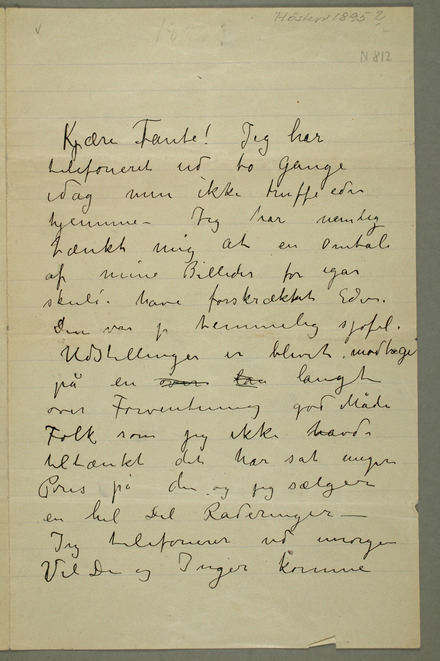 Høsten 1895?
N 812
Kjære Tante! Jeg har
telefoneret ud to Gange
idag men ikke truffe eder
hjemme – Jeg har nemlig
tænkt mig at en Omtale
af mine Billeder for igår
skulde have forskrækket Eder.
Den var jo temmelig sjofel.
Udstillingen er blevet modtaget
på en langt
over Forventning god Måde
Folk som jeg ikke havde
tiltænkt det har sat megen
Pris på den og jeg sælger
en hel Del Raderinger –
Jeg telefonerer ud imorgen
Vil De og Inger komme